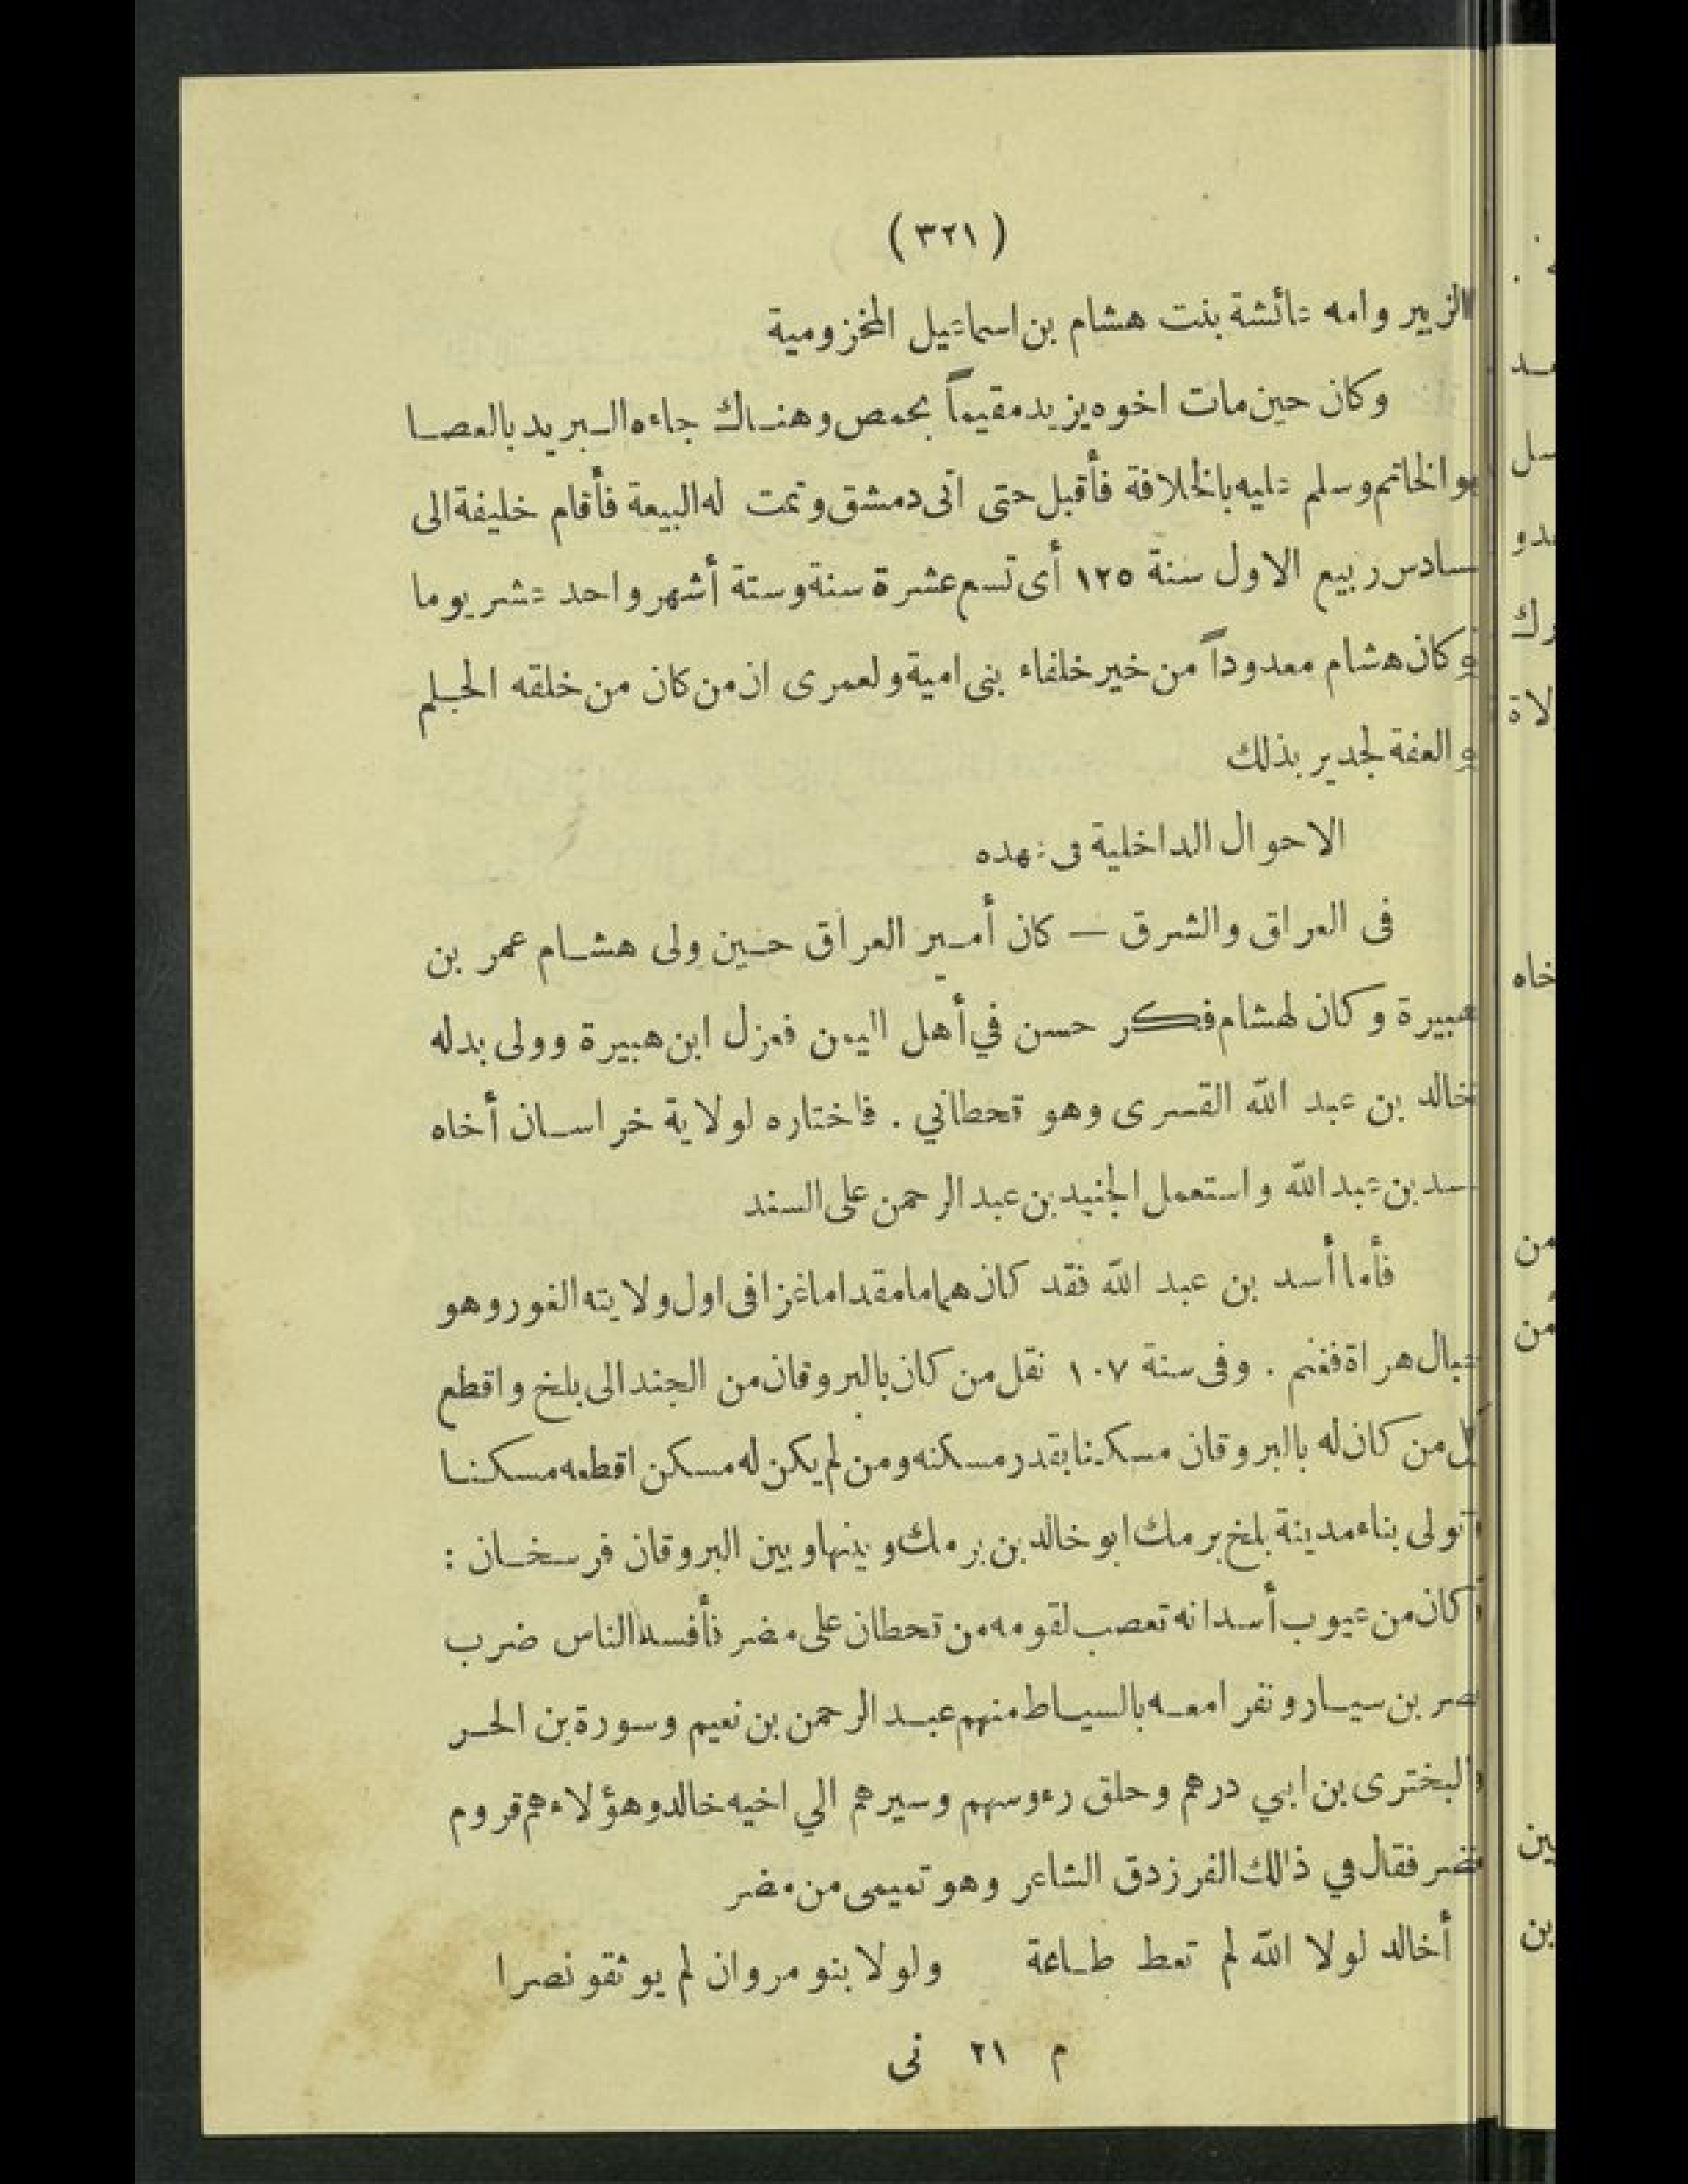 (٣٢١)
الزبير وامه عائشة بنت هشام بن اسماعيل المخزومية
وكان حين مات اخوه يزيد مقيماً بحمص وهناك جاءه البريد بالعصا
والخاتم وسلم عليه بالخلافة فأقبل حتى اتى دمشق وتمت له البيعة فأقام خليفة الى
سادس ربيع الاول سنة ١٢٥ أى تسع عشرة سنة وستة أشهر واحد عشر يوما
وكان هشام معدوداً من خير خلفاء بنى امية ولعمرى ان من كان من خلقه الحلم
والعفة لجدير بذلك
الاحوال الداخلية فى عهده
فى العراق والشرق — كان أمير العراق حين ولى هشام عمر بن
هبيرة وكان لهشام فكر حسن في أهل اليمن فعزل ابن هبيرة وولى بدله
خالد بن عبد الله القسرى وهو قحطاني . فاختاره لولاية خراسان أخاه
أسد بن عبد الله واستعمل الجنيد بن عبد الرحمن على السند
فأما أسد بن عبد الله فقد كان هماما مقداما غزا فى اول ولايته الغور وهو
جبال هراة فغنم . وفى سنة ١٠٧ نقل من كان بالبروقان من الجند الى بلخ واقطع
كل من كان له بالبروقان مسكنا بقدر مسكنه ومن لم يكن له مسكن اقطعه مسكنا
وتولى بناء مدينة بلخ برمك ابو خالد بن برمك وبينها وبين البروقان فرسخان :
وكان من عيوب أسد انه تعصب لقومه من قحطان على مضر فأفسد الناس ضرب
نصر بن سيار ونفرا معه بالسياط منهم عبد الرحمن بن نعيم وسورة بن الحر
والبخترى بن ابي درهم وحلق رءوسهم وسيرهم الي اخيه خالد وهؤلاء هم قروم
مضر فقال في ذالك الفرزدق الشاعر وهو تميمى من مضر
أخالد لولا الله لم تعط طاعة ولولا بنو مروان لم يوثقو نصرا
م ٢١ نى